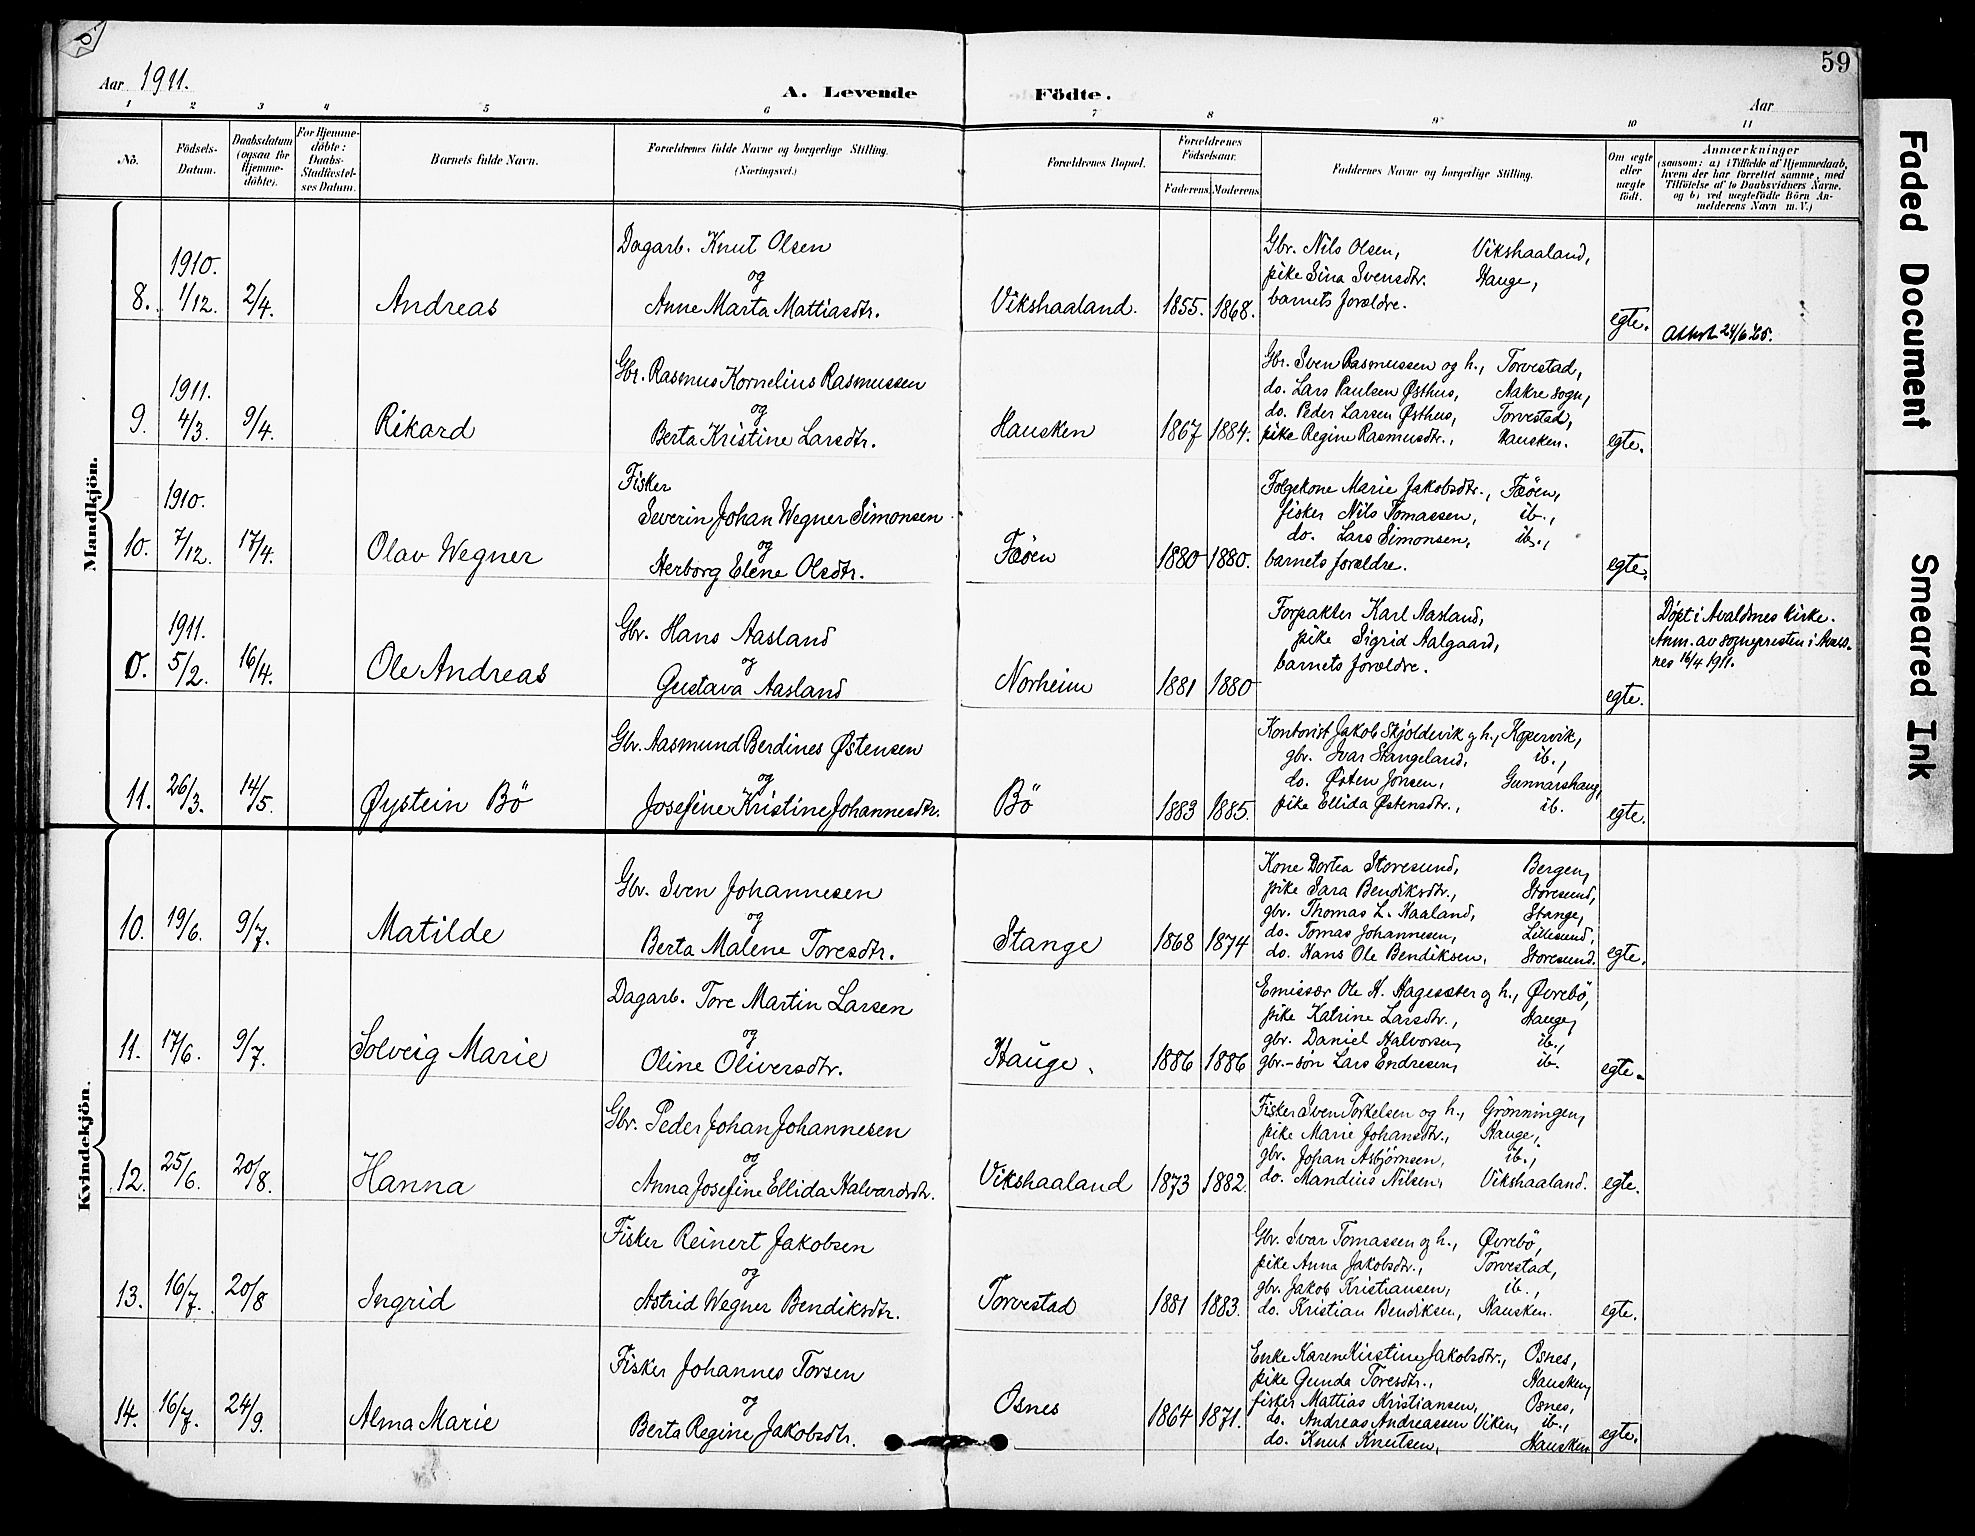 59
Aar 1911.
A. Levende Födte.
Aar
1 2 3 4 5 6 7 8 9 10 11
No.
Födsels-Datum.
Daabsdatum (ogsaa for Hjemme-döbte).
For Hjemme-döbte: Daabs-Stadfæstel-ses Datum.
Barnets fulde Navn.
Forældrenes fulde Navne og borgerlige Stilling.
(Næringsvei.)
Forældrenes Bopæl.
Forældrenes Födselsaar.
Faderens. Moderens.
Faddernes Navne og borgerlige Stilling.
Om ægte eller uægte födt.
Anmærkninger
(saasom: a) i Tilfælde af Hjemmedaab,
hvem der har forrettet samme, med
Tilföielse af to Daabsvidners Navne.
og b) ved uægtefödte Börn An-
melderens Navn m. V.)
Mandkjön.
8. 1910. 1/12. 2/4. Andreas
Dagarb. Knut Olsen
og
Anne Marta Mattiasdtr.
Vikshaaland. 1855. 1868.
Gbr. Nils Olsen, Vikshaaland,
pike Sina Svensdtr. Hauge,
barnets forældre.
egte.
Attest 24/6 25.
9. 1911. 4/3. 9/4. Rikard
Gbr. Rasmus Kornelius Rasmussen
og
Berta Kristine Larsdtr.
Hausken 1867 1884.
Gbr. Sven Rasmussen og h., Torvestad,
do. Lars Paulsen Østhus, Aakre sogn,
do. Peder Larsen Østhus, Torvestad,
pike Regine Rasmusdtr., Hausken.
egte.
10. 1910. 7/12. 17/4. Olav Wegner
Fisker
Severin Johan Wegner Simonsen
og
Herborg Elene Olsdtr.
Fæøen 1880 1880.
Folgekone Marie Jakobsdtr., Fæøen,
fisker Nils Tomassen, ib.,
do. Lars Simonsen, ib.,
barnets forældre.
egte.
0. 1911. 5/2. 16/4. Ole Andreas
Gbr. Hans Aasland
og
Gustava Aasland
Norheim 1881 1880
Forpakter Karl Aasland,
pike Sigrid Aalgaard,
barnets forældre.
egte.
Döpt i Avaldnes kirke.
Anm. av sognepresten i Avalds-
nes 16/4 1911.
11. 26/3. 14/5. Øystein Bö
Gbr. Aasmund Berdines Østensen
og
Josefine Kristine Johannesdtr.
Bö 1883 1885.
Kontorist Jakob Skjoldevik og h., Kopervik,
gbr. Ivar Stangeland, ib.,
do. Østen Jonsen, Gunnarshaug,
pike Ellida Østensdtr., ib.
egte.
Kvindekjön.
10. 19/6. 9/7. Matilde
Gbr. Sven Johannesen
og
Berta Malene Toresdtr.
Stange 1868 1874
Kone Dortea Storesund, Bergen,
pike Sara Bendiksdtr., Storesund,
gbr. Thomas L. Haaland, Stange,
do. Tomas Johannesen, Lillesund,
do. Hans Ole Bendiksen, Storesund.
egte.
11. 17/6. 9/7. Solveig Marie
Dagarb. Tore Martin Larsen
og
Oline Oliversdtr.
Hauge. 1886 1886
Emissær Ole H. Hagesæter og h., Øvrebö,
pike Katrine Larsdtr., Hauge,
gbr. Daniel Halvorsen, ib.,
gbr.-sön Lars Endresen, ib.
egte.
12. 25/6. 20/8. Hanna
Gbr. Peder Johan Johannesen
og
Anna Josefine Ellida Halvardsdtr.
Vikshaaland 1873 1882.
Fisker Sven Torkelsen og h., Grönningen,
pike Marie Johansdtr., Hauge,
gbr. Johan Asbjörnsen, ib.,
do. Mandius Nilsen, Vikshaaland.
egte.
13. 16/7. 20/8 Ingrid
Fisker Reinert Jakobsen
og
Astrid Wegner Bendiksdtr.
Torvestad 1881 1883.
Gbr. Ivar Tomassen og h., Øvrebö,
pike Anna Jakobsdtr., Torvestad,
gbr. Jakob Kristiansen, ib.,
do. Kristian Bendiksen, Hausken.
egte.
14. 16/7. 24/9. Alma Marie
Fisker Johannes Torsen
og
Berta Regine Jakobsdtr.
Osnes 1864 1871.
Enke Karen Kirstine Jakobsdtr., Osnes,
pike Gunda Toresdtr., Hausken,
fisker Mattias Kristiansen, Osnes,
do. Andreas Andreassen Viken, ib.,
do. Knut Knutsen, Hausken
egte.
Faded Document
Smeared Ink